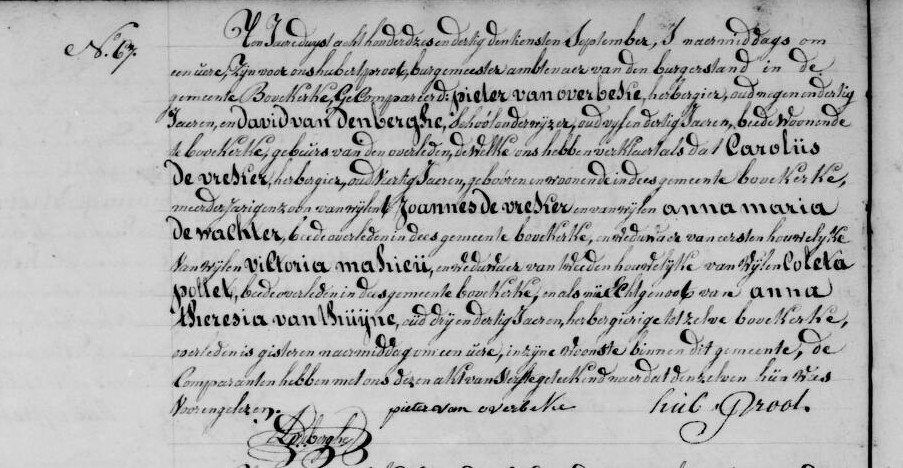 N.° 67.
Ten Jaere duyst acht honderd zes en dertig den tiensten September, 'S naermiddags om
een uere, Zijn voor ons hubert proot, burgemeester ambtenaer van den burgerstand in de
gemeente Bovekerke, Gecompareerd: pieter van overbeke, herbergier, oud negen en dertig
Jaeren, en david van Denberghe, schoolonderwyzer, oud vyf en dertig Jaeren, beede woonende
te bovekerke, gebuers van den overleden, dewelke ons hebben verklaert als dat Carolus
De vreker, herbergier, oud viertig Jaeren, gebooren en woonende in dees gemeente bovekerke,
meerderjarigen zoon van wylent Joannes de vreker en van wylen anna maria
De wachter, beede overleden in dees gemeente bovekerke, en weduwaer van eersten houwelyke
van wylen viktoria mahieu, en weduwaer van tweeden houwelyke van wylen Coleta
pollet, beede overleden in dees gemeente bovekerke, en als nu Echtgenoot van anna
theresia van thuyne, oud dry en dertig Jaeren, herbergierige tot zelve bovekerke,
overleden is gisteren naermiddag om een uere, in zyne woonste binnen dit gemeente, de
Comparanten hebben met ons dezen akt van sterfte geteekend naer dat den zelven hun was
voorengelezen.
pieter van overbeke hub Proot.
Denberghe